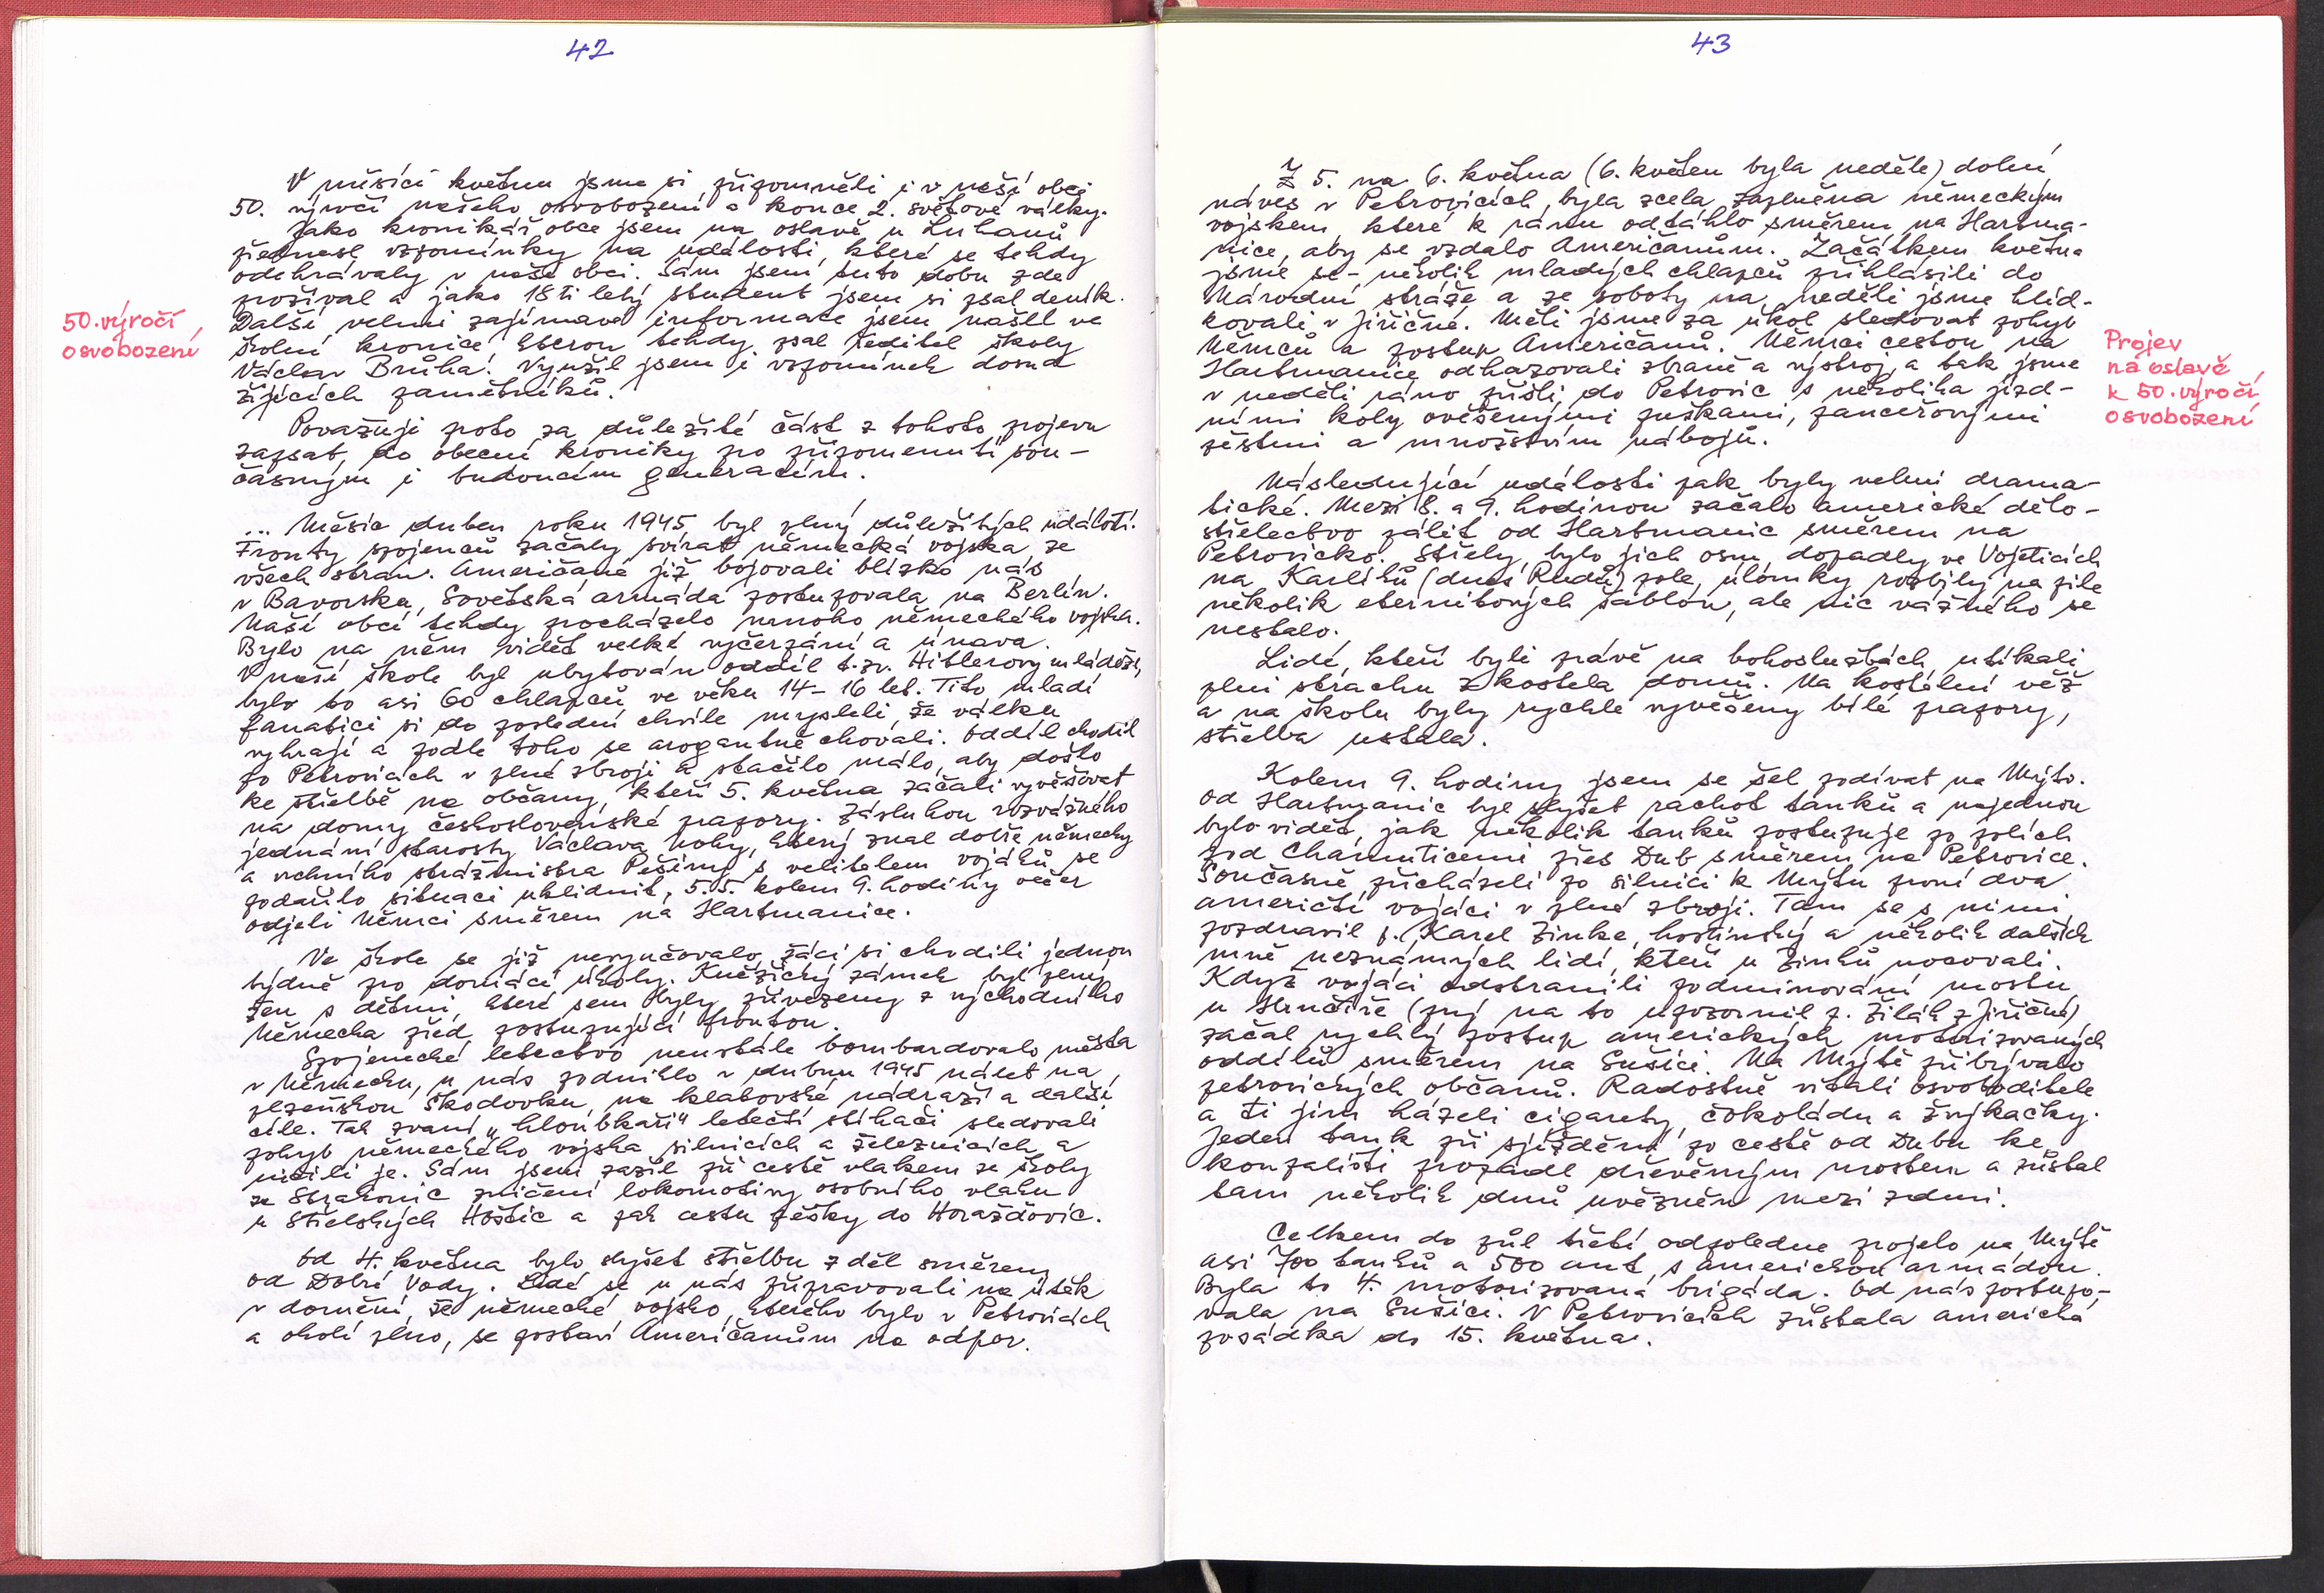 42
V měsíci květnu jsme si připomněli i v naší obci
50. výročí našeho osvobození a konce 2. světové války.
Jako kronikář obce jsem na oslavě u Luhanů
přednesl vzpomínky na události, které se tehdy
odehrávaly v naší obci. Sám jsem tuto dobu zde
prožíval a jako 18ti letý student jsem si psal deník.
Další velmi zajímavé informace jsem našel ve
školní kronice kterou tehdy psal ředitel školy
Václav Brůha. Využil jsem i vzpomínek dosud
žijících pamětníků.
50. výročí
osvobození
Považuji proto za důležité část z tohoto projevu
zapsat do obecní kroniky pro připomenutí sou-
časným i budoucím generacím.
... Měsíc duben roku 1945 byl plný důležitých událostí.
Fronty spojenců začaly svírat německá vojska ze
všech stran. Američané již bojovali blízko nás
v Bavorsku, Sovětská armáda postupovala na Berlín.
Naší obcí tehdy procházelo mnoho německého vojska.
Bylo na něm vidět velké vyčerpání a únava.
V naší škole byl ubytován oddíl t.zv. Hitlerovy mládeže,
bylo to asi 60 chlapců ve věku 14-16 let. Tito mladí
fanatici si do poslední chvíle mysleli, že válku
vyhrají a podle toho se arogantně chovali. Oddíl chodil
po Petrovicích v plné zbroji a stačilo málo, aby došlo
ke střelbě na občany, kteří 5. května začali vyvěšovat
na domy československé prapory. Zásluhou rozvážného
jednání starosty Václava Nohy, který znal dobře německy
a vrchního strážmistra Pešiny s velitelem vojáků se
podařilo situaci uklidnit, 5.5. kolem 9. hodiny večer
odjeli Němci směrem na Hartmanice.
Ve škole se již nevyučovalo, žáci si chodili jednou
týdně pro domácí úkoly. Kněžický zámek byl plný
žen s dětmi, které sem byly přivezeny z východního
Německa před postupující frontou.
Spojenecké letectvo neustále bombardovalo města
v Německu, u nás podniklo v dubnu 1945 nálet na
plzeňskou Škodovku, na klatovské nádraží a další
cíle. Tak zvaní „hloubkaři" letečtí stíhači sledovali
pohyb německého vojska silnicích a železnicích a
ničili je. Sám jsem zažil při cestě vlakem ze školy
ze Strakonic zničení lokomotivy osobního vlaku
u Střelských Hoštic a pak cestu pěšky do Horažďovic.
Od 4. května bylo slyšet střelbu z děl směrem
od Dobré Vody. Lidé se u nás připravovali na útěk
v domění, že německé vojsko, kterého bylo v Petrovicích
a okolí plno, se postaví Američanům na odpor.
43
Z 5. na 6. května (6. květen byla neděle) dolní
náves v Petrovicích byla zcela zaplněna německým
vojskem, které k ránu odtáhlo směrem na Hartma-
nice, aby se vzdalo Američanům. Začátkem května
jsme se - několik mladých chlapců přihlásili do
Národní stráže a ze soboty na neděli jsme hlíd-
kovali v Jiřičné. Měli jsme za úkol sledovat pohyb
Němců a postup Američanů. Němci cestou na
Hartmanice odhazovali zbraně a výstroj, a tak jsme
v neděli ráno přišli do Petrovic s několika jízd-
ními koly ověšenými puškami, pancéřovými
pěstmi a množstvím nábojů.
Projev
na oslavě
k 50. výročí
osvobození
Následující události pak byly velmi drama-
tické. Mezi 8. a 9. hodinou začalo americké dělo-
střelectvo pálit od Hartmanic směrem na
Petrovicko. Střely, bylo jich osm, dopadly ve Vojeticích
na Karlíků (dnes Rudů) pole, úlomky rozbily na pile
několik eternitových šablon, ale nic vážného se
nestalo.
Lidé, kteří byli právě na bohoslužbách, utíkali
plni strachu z kostela domů. Na kostelní věž
a na školu byly rychle vyvěšeny bílé prapory,
střelba ustala.
Kolem 9. hodiny jsem se šel podívat na Mýto.
Od Hartmanic byl slyšet rachot tanků a najednou
bylo vidět, jak několik tanků postupuje po polích
pod Chamuticemi přes Dub směrem na Petrovice.
Současně přicházeli po silnici k Mýtu první dva
američtí vojáci v plné zbroji. Tam se s nimi
pozdravil p. Karel Zinke, hostinský a několik dalších
mně neznámých lidí, kteří u Zinků nocovali.
Když vojáci odstranili podminování mostu
u Hrnčíře (prý na to upozornil p. Žilák z Jiřičné)
začal rychlý postup amerických motorizovaných
oddílů směrem na Sušici. Na Mýtě přibývalo
petrovických občanů. Radostně vítali osvoboditele
a ti jim házeli cigarety, čokoládu a žvýkačky.
Jeden tank při sjíždění po cestě od Dubu ke
koupališti propadl dřevěným mostem a zůstal
tam několik dnů uvězněn mezi zdmi.
Celkem do půl třetí odpoledne projelo na Mýtě
asi 700 tanků a 500 aut s americkou armádou.
Byla to 4. motorizovaná brigáda. Od nás postupo-
vala na Sušici. V Petrovicích zůstala americká
posádka do 15. května.